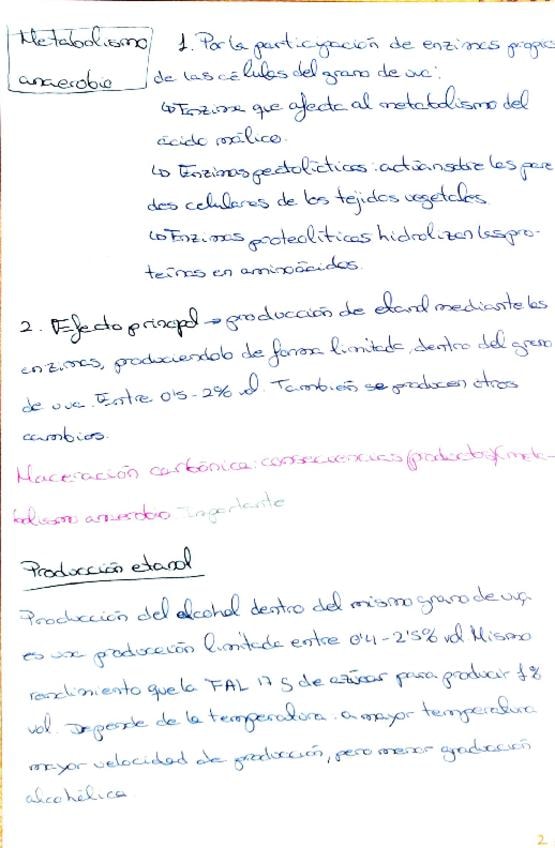 Metabolismo
anaerobio
1. Por la participación de enzimas propias
de las células del grano de uva:
↳ Enzima que afecta al metabolismo del
ácido málico.
↳ Enzimas pectolíticas: actúan sobre las pare
des celulares de los tejidos vegetales.
↳ Enzimas proteolíticas hidrolizan las pro-
teínas en aminoácidos.
2. Efecto principal → producción de etanol mediante las
enzimas, produciendolo de forma limitada, dentro del grano
de uva. Entre 0'5-2% vol. También se producen otros
cambios.
Maceración carbónica: consecuencias/productos/meta-
bolismo anaerobio Importante
Producción etanol
Producción del alcohol dentro del mismo grano de uva,
es una producción limitada entre 0'4-2'5% vol Mismo
rendimiento que la FAL 17 g de azúcar para producir 1%
vol. Depende de la temperatura: a mayor temperatura
mayor velocidad de producción, pero menor graduación
alcohólica
2